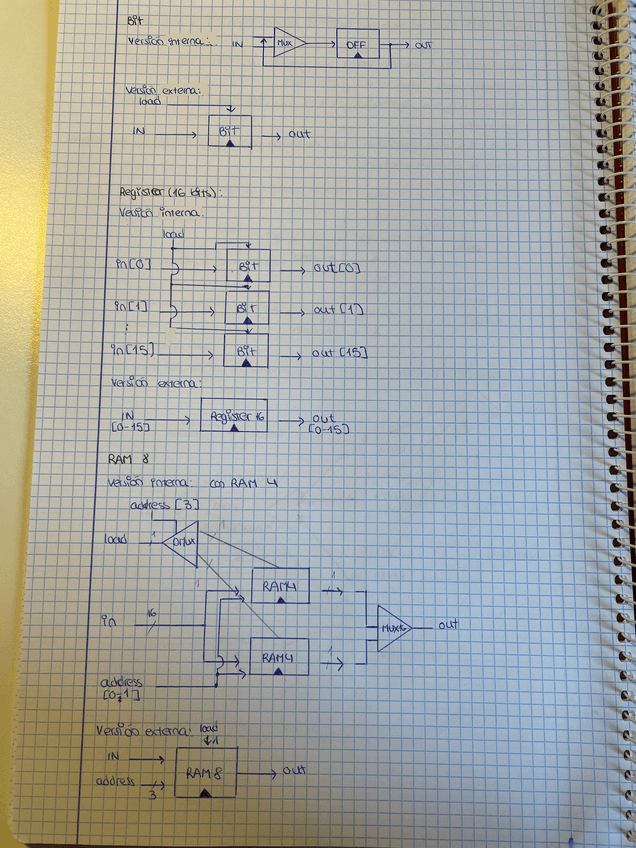 Bit
Versión interna: IN MUX DFF OUT
Versión externa:
load
IN Bit out
Register (16 bits):
Versión interna:
load
in[0] Bit out[0]
in[1] Bit out[1]
:
in[15] Bit out[15]
Versión externa:
IN [0-15] Register 16 out [0-15]
RAM 8
Versión interna: con RAM 4
address [3]
load 1 DMUX 1
1
RAM4 1
in 16 MUX16 out
RAM4 1
address
[0-1]
Versión externa: load
1
IN
RAM8 out
address 3